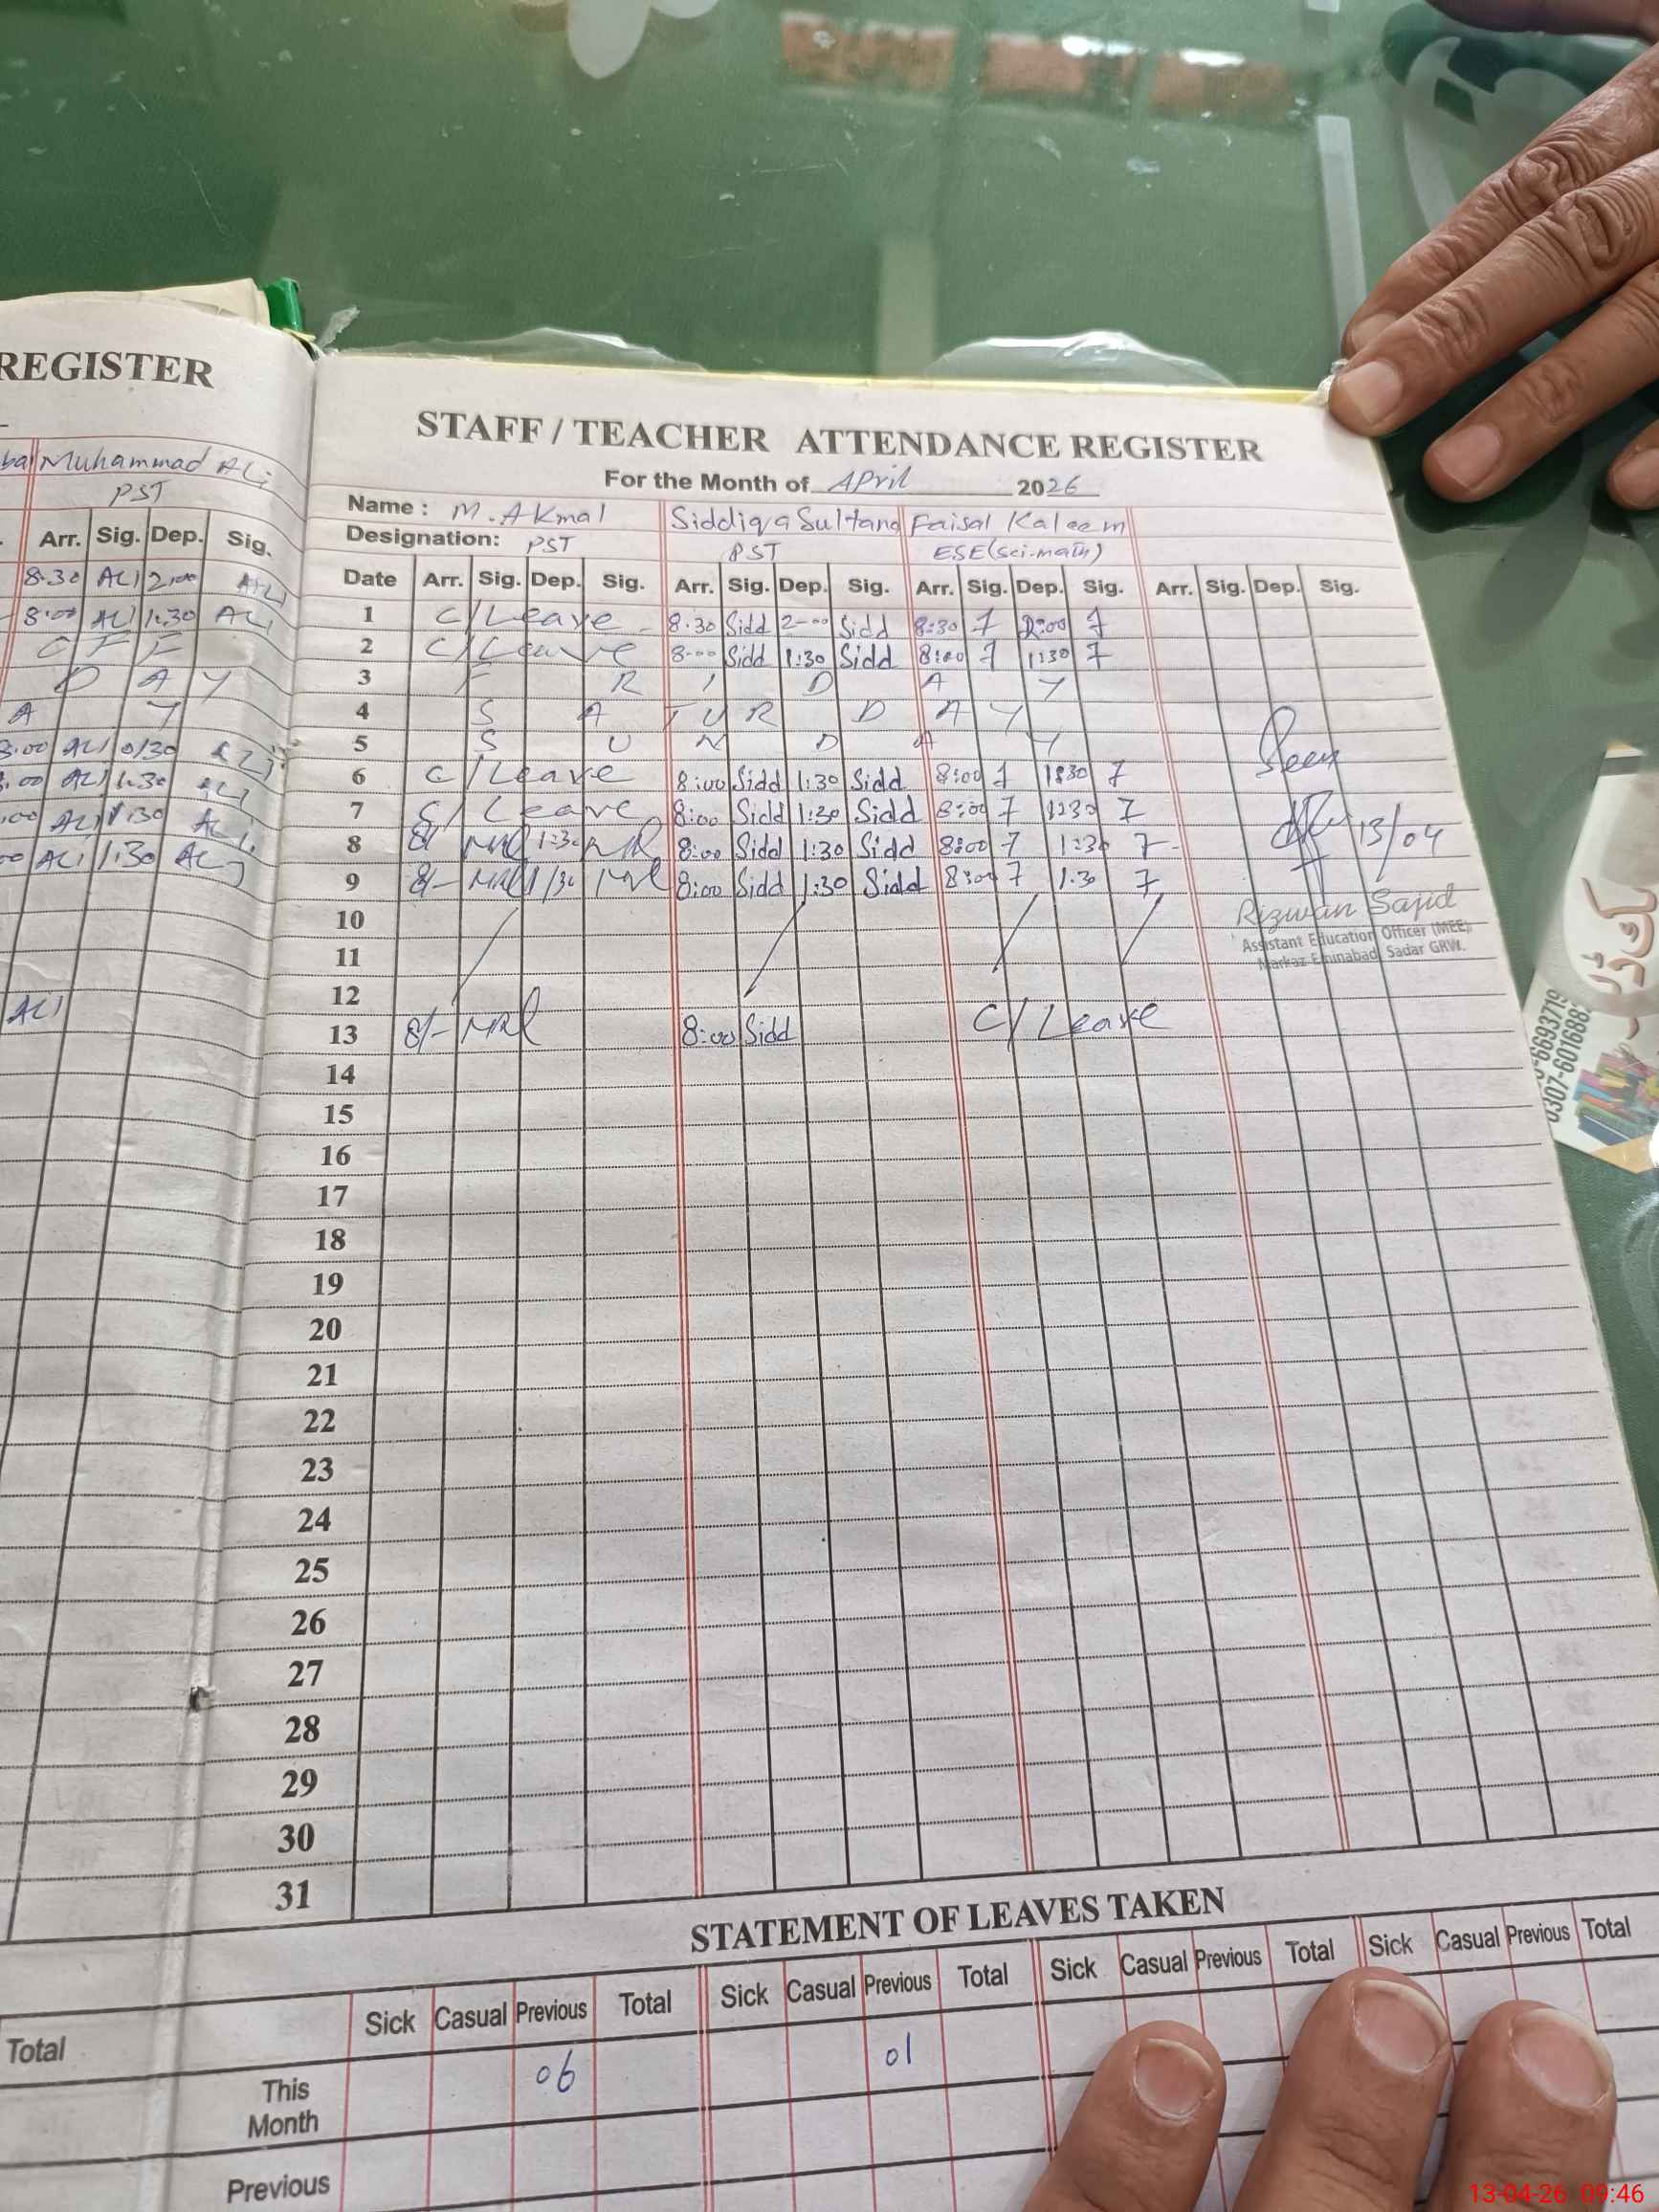 REGISTER
Muhammad ALi
PST
Arr. Sig. Dep. Sig.
8.30 ALI 2:00 ALI
8:00 ALI 1:30 ALI
O F F
D A Y
A Y
8:00 ALI
:00 ALI 1:30
:00 ALI 1:30 ALI
00 ALI 1:30 ALI
ALI
Total
STAFF / TEACHER ATTENDANCE REGISTER
For the Month of April 2026
Name : M. AKmal Siddiqa Sultana Faisal Kaleem
Designation: PST PST ESE(sci-math)
Date Arr. Sig. Dep. Sig. Arr. Sig. Dep. Sig. Arr. Sig. Dep. Sig. Arr. Sig. Dep. Sig.
1 C/Leave 8.30 Sidd 2-00 Sidd 8:30 2:00
2 C/Leave 8-00 Sidd 1:30 Sidd 8:00 1:30
3 F R I D A Y
4 S A T U R D A Y
5 S U N D A Y
6 C/Leave 8:00 Sidd 1:30 Sidd 8:00 1:30
7 Leave 8:00 Sidd 1:30 Sidd 8:00 1:30
8 8/- 1:30 8:00 Sidd 1:30 Sidd 8:00 1:30
9 8/- 1/30 8:00 Sidd 1:30 Sidd 8:00 1:30
10
11
12
13 8/- 8:00 Sidd C/Leave
14
15
16
17
18
19
20
21
22
23
24
25
26
27
28
29
30
31
Seen
13/04
Rizwan Sajid
Assistant Education Officer (MEE)
Markaz Eminabad, Sadar GRW.
STATEMENT OF LEAVES TAKEN
Sick Casual Previous Total Sick Casual Previous Total Sick Casual Previous Total Sick Casual Previous Total
This Month 06 01
Previous
6693719
0307-601688
13-04-26 09:46